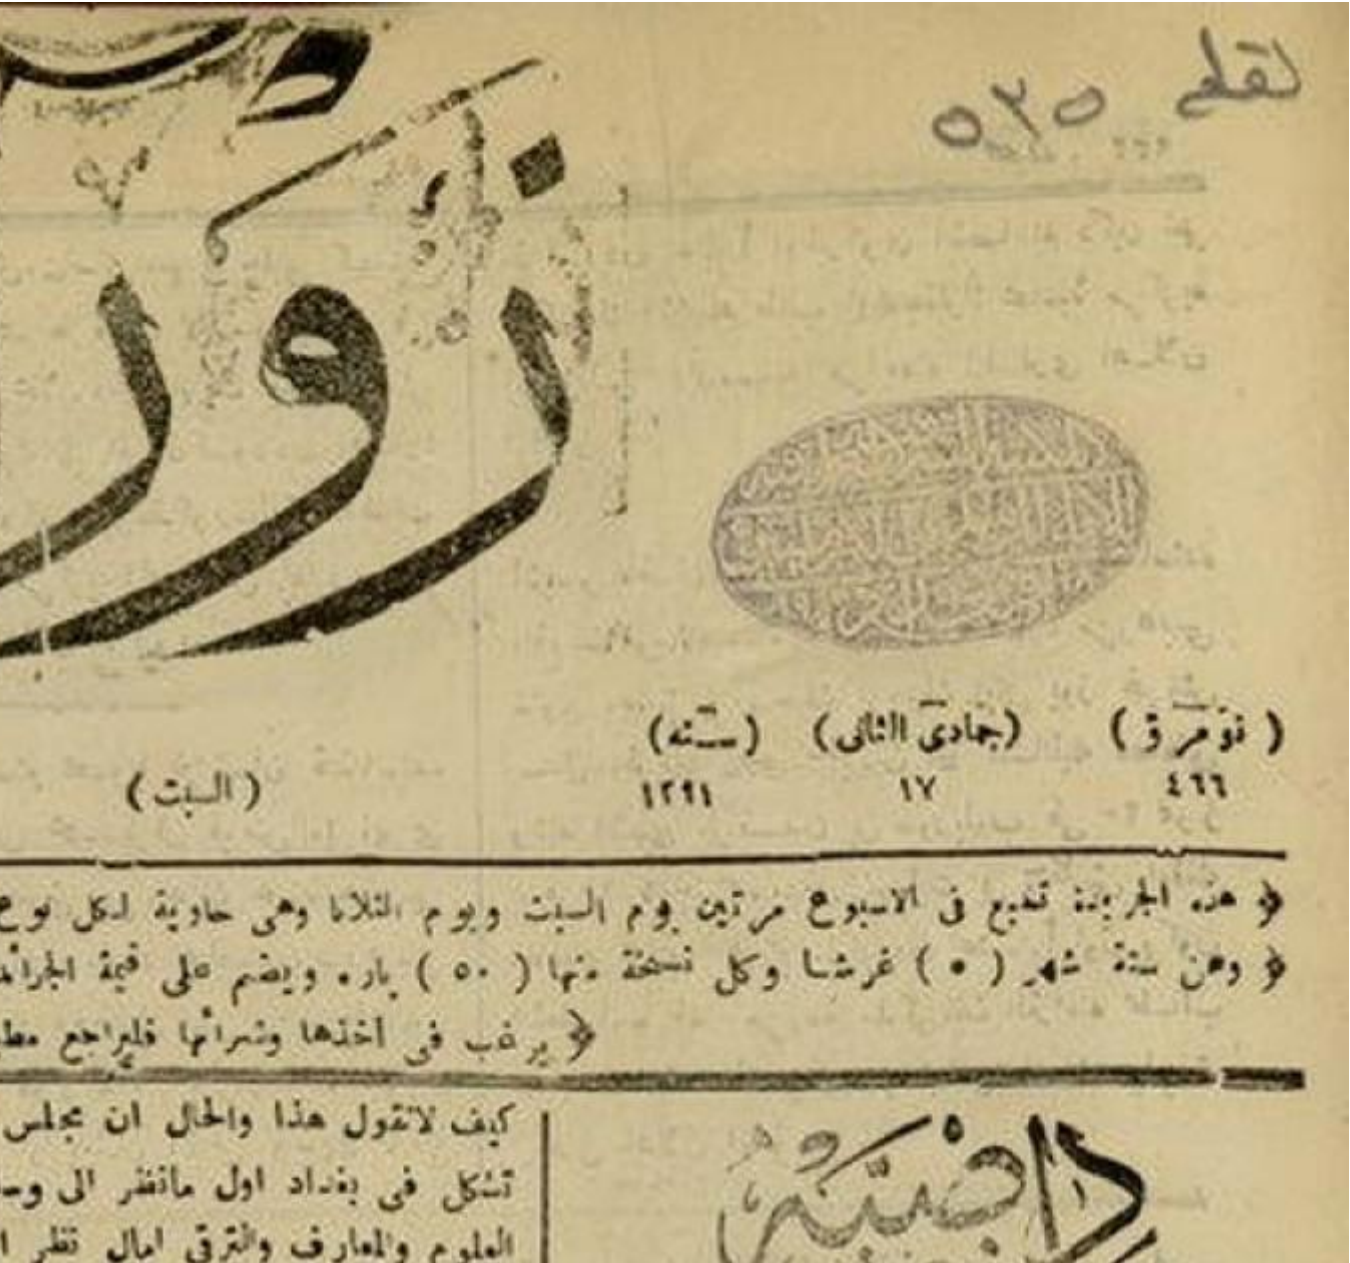 ٥٢٥
زور
( نومرو ) (جمادى الثانى) (سنه)
٤٦٦ ١٧ ١٢٩١
(السبت)
﴿ هذه الجريدة تطبع فى الاسبوع مرتين يوم السبت ويوم الثلاثا وهى حاوية لكل نوع
﴿ وعن ستة شهر ( ٥٠ ) غرشا وكل نسخة منها ( ٥٠ ) باره ويضم على قيمة الجرائد
﴿ يرغب فى اخذها وشرائها فليراجع
داخلية
كيف لانقول هذا والحال ان مجلس
تشكل فى بغداد اول مانظر الى
العلوم والمعارف والترقى امال نظر